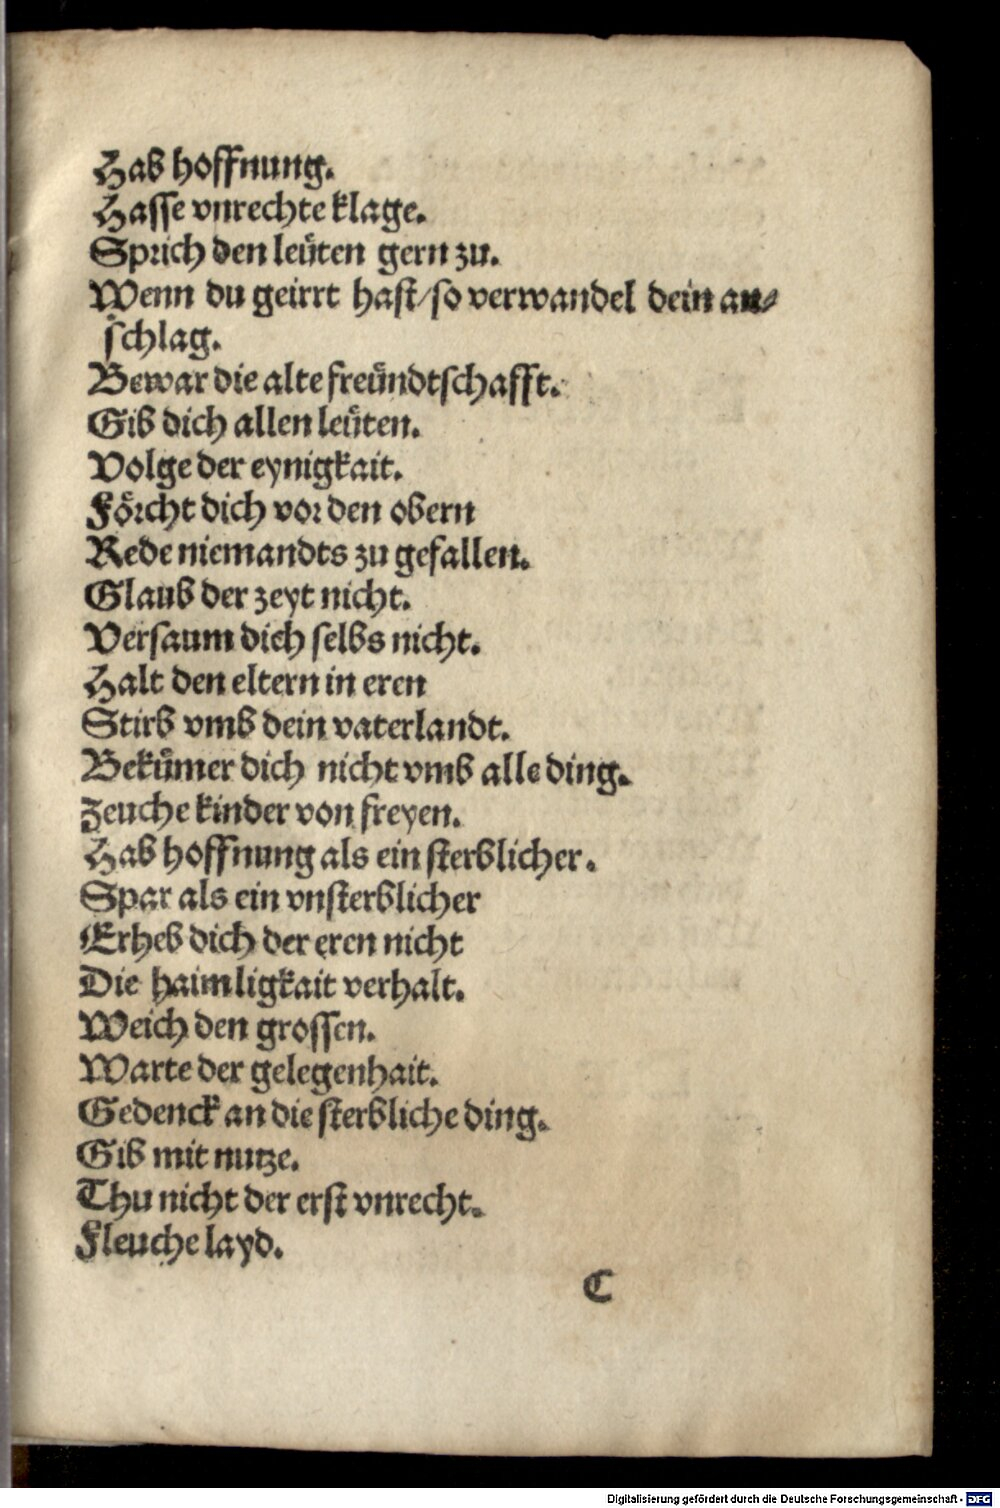 Hab hoffnung.
Hasse vnrechte klage.
Sprich den leüten gern zu.
Wenn du geirrt hast/so verwandel dein an⸗
schlag.
Bewar die alte freündtschafft.
Gib dich allen leüten.
Volge der eynigkait.
Förcht dich vor den obern
Rede niemandts zu gefallen.
Glaub der zeyt nicht.
Versaum dich selbs nicht.
Halt den eltern in eren
Stirb vmb dein vaterlandt.
Bekümer dich nicht vmb alle ding.
Zeuche kinder von freyen.
Hab hoffnung als ein sterblicher.
Spar als ein vnsterblicher
Erheb dich der eren nicht
Die haimligkait verhalt.
Weich den grossen.
Warte der gelegenhait.
Gedenck an die sterbliche ding.
Gib mit nutze.
Thu nicht der erst vnrecht.
Fleuche layd.
C
Digitalisierung gefördert durch die Deutsche Forschungsgemeinschaft - DFG